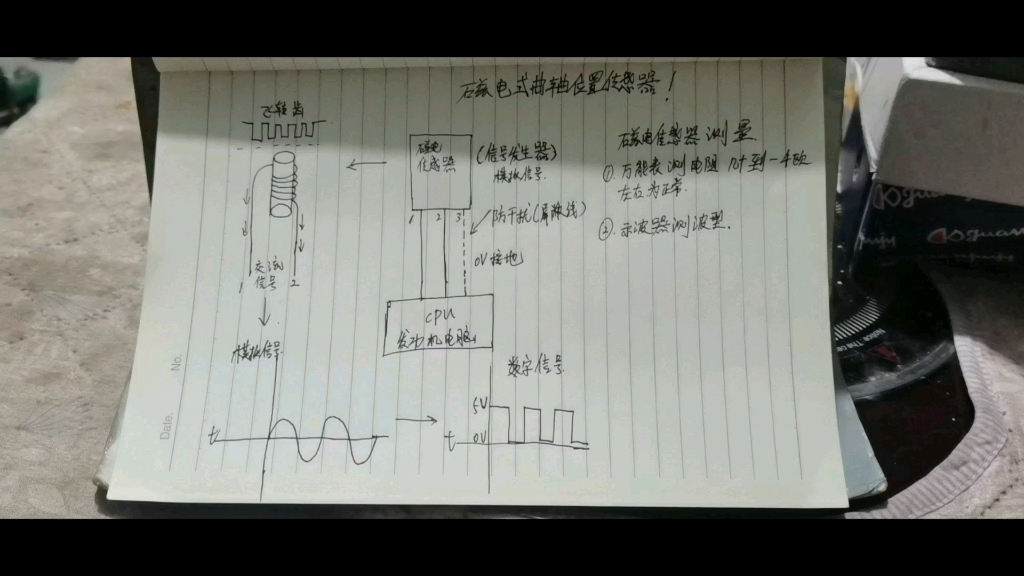 磁电式曲轴位置传感器！
飞轮齿
磁电
传感器
(信号发生器)
模拟信号
1 2 3
防干扰(屏蔽线)
0V接地
交流
信号
1 2
CPU
发动机电脑
模拟信号
t
数字信号
5V
0V
t
磁电传感器测量
① 万能表测电阻
左右为正常
② 示波器测波型.
No.
Date.